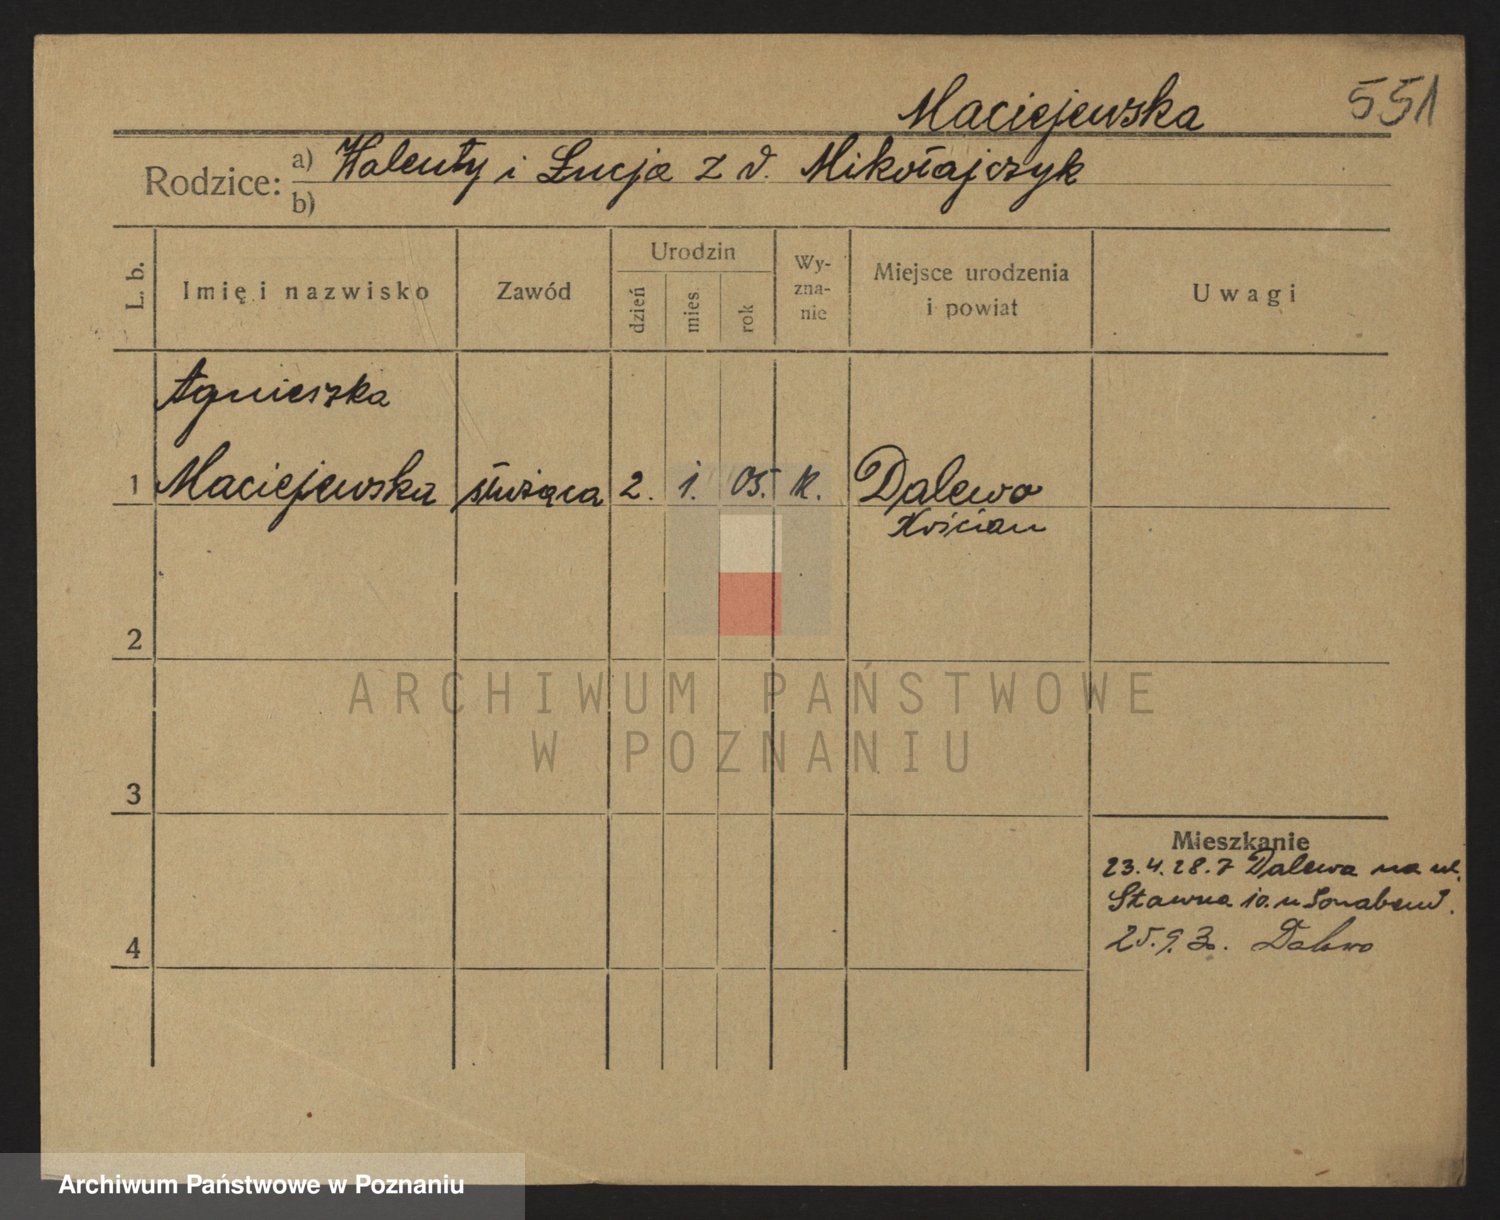 Maciejewska
551
Rodzice: a) Walenty i Łucja z d. Mikołajczyk
b)
L. b. Imię i nazwisko Zawód Urodzin dzień mies. rok Wy-zna-nie Miejsce urodzenia i powiat Uwagi
Agnieszka
1 Maciejewska służąca 2. 1. 05. k. Dalewo
Kościan
2
ARCHIWUM PAŃSTWOWE
W POZNANIU
3
Mieszkanie
23.4.28. z Dalewa na ul.
Stawna 10. u Sonabend.
4 25.9.30. Dalewo
Archiwum Państwowe w Poznaniu